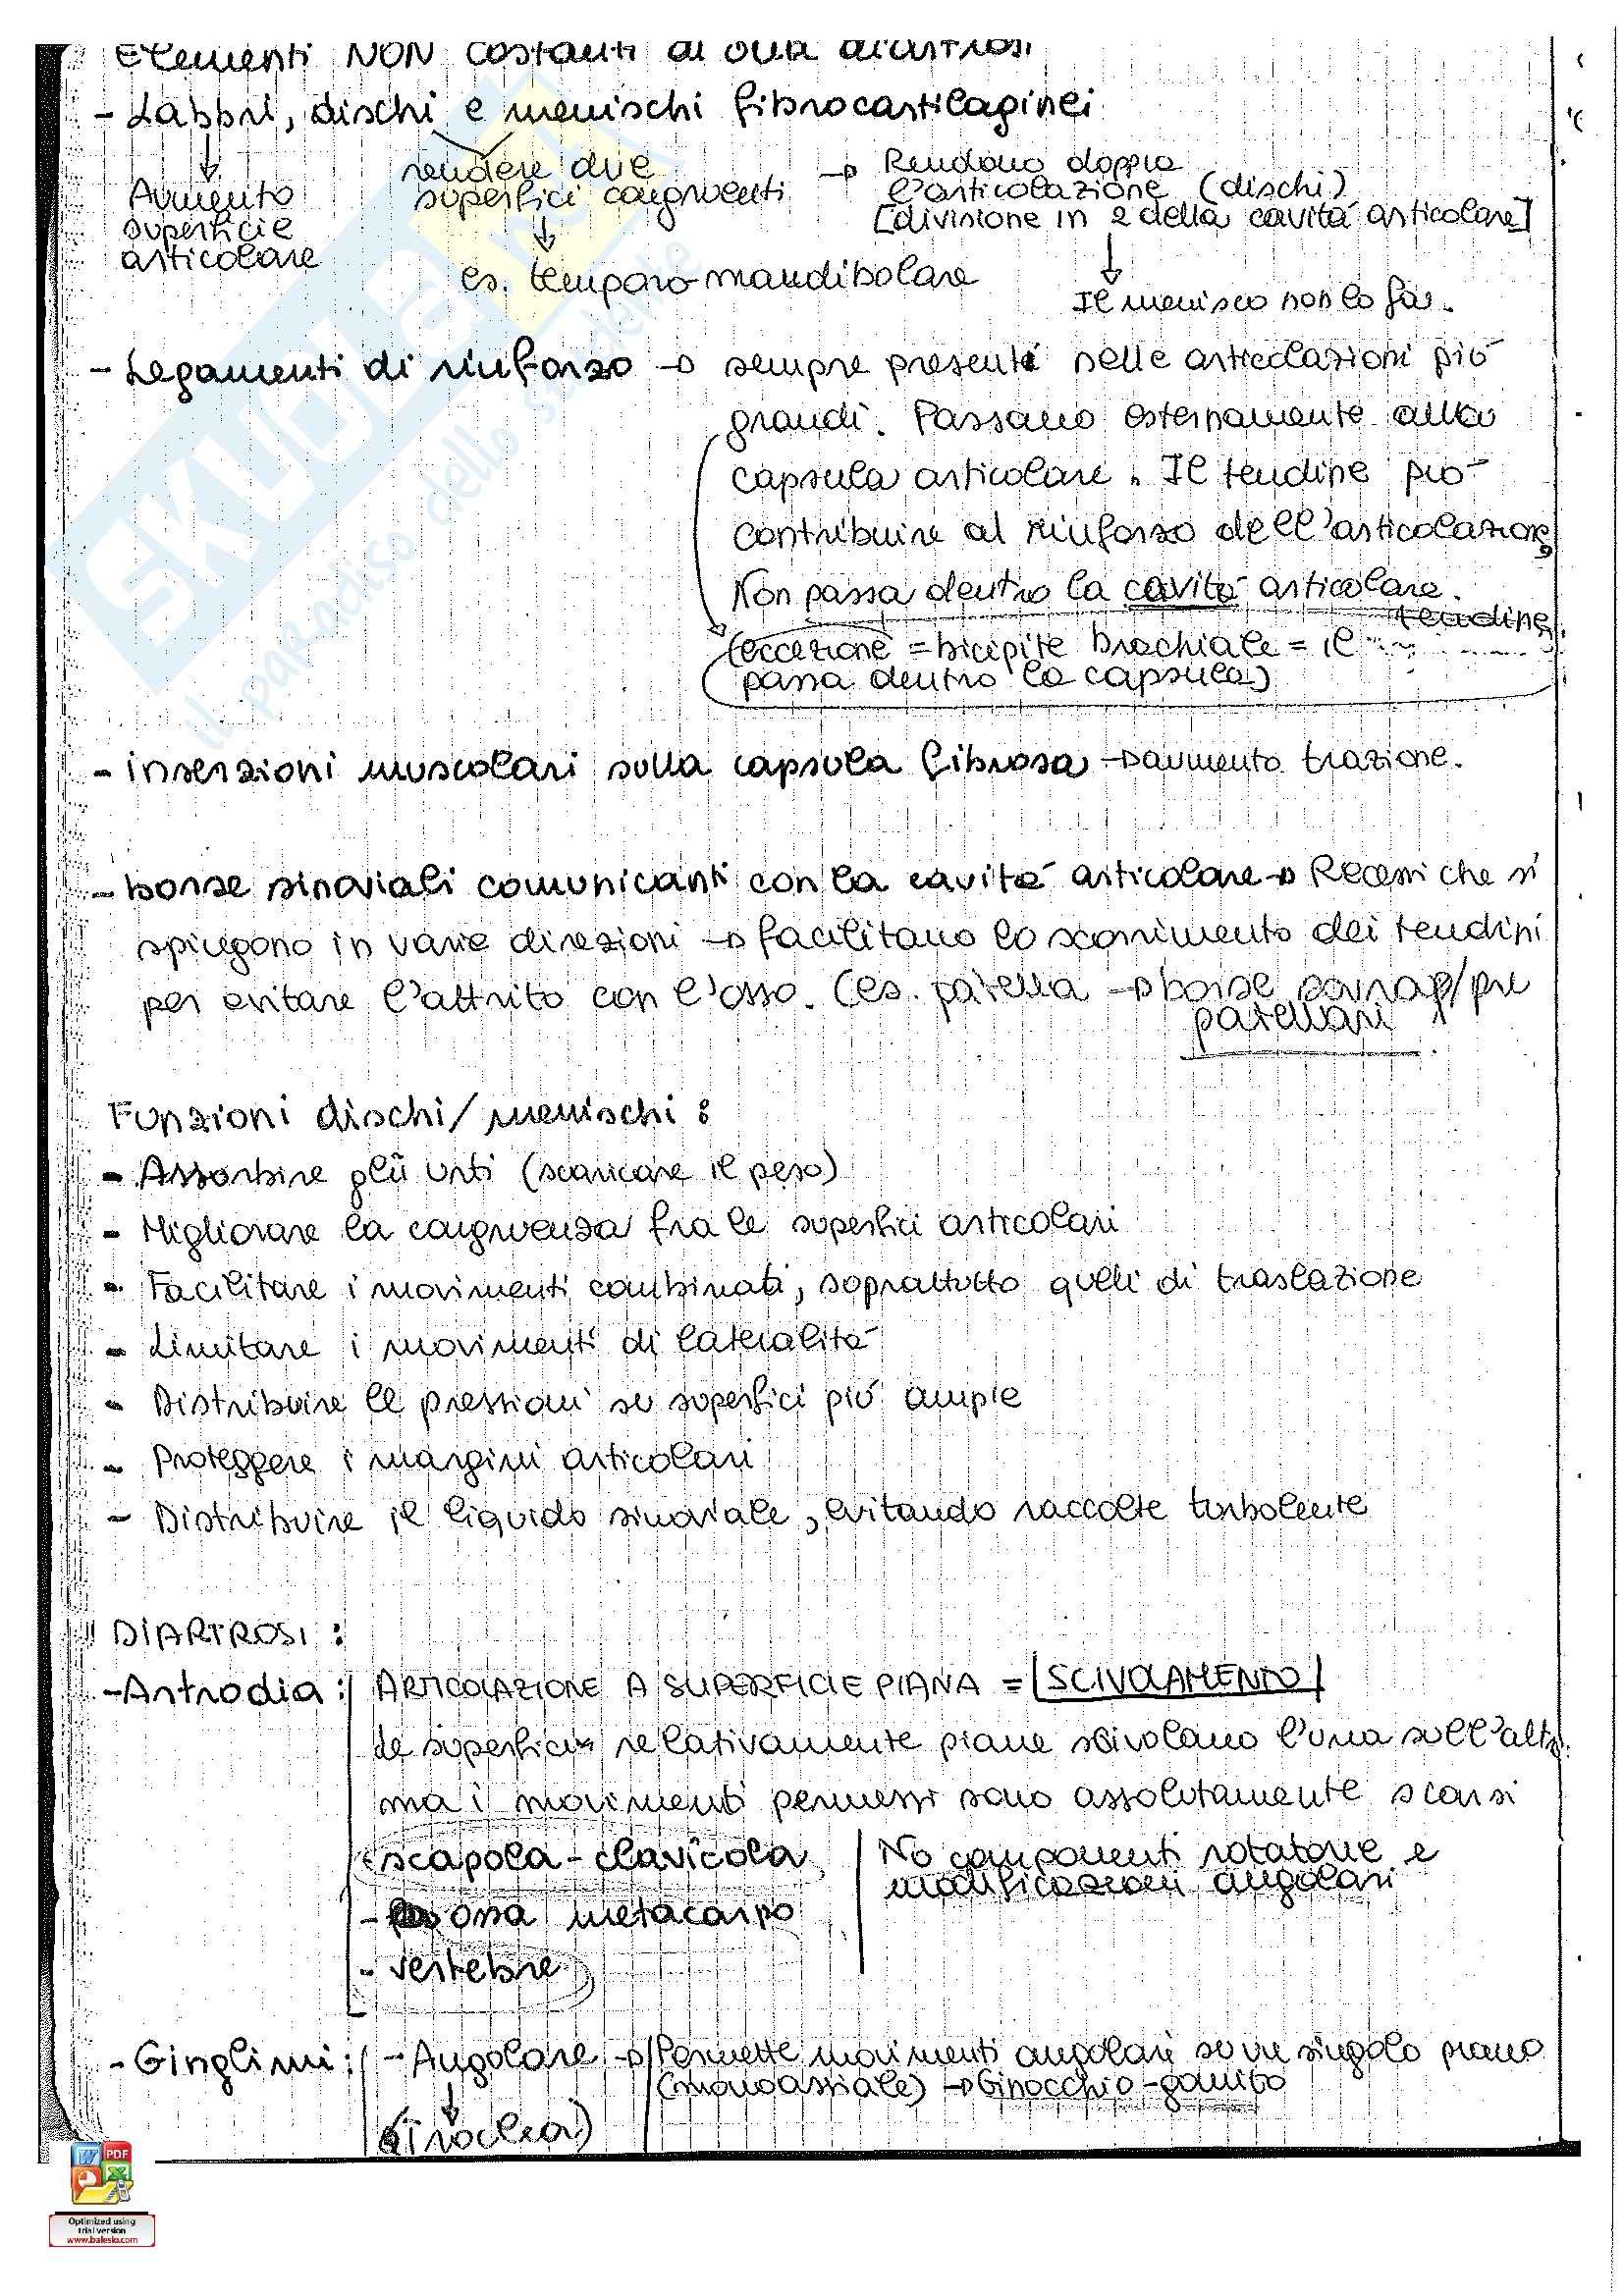 Elementi NON costanti di una diartrosi
- Labbri, dischi e menischi fibrocartilaginei
Aumento superficie articolare
rendere due superfici congruenti
es. temporo-mandibolare
→ Rendono doppia l'articolazione (dischi)
[divisione in 2 della cavità articolare]
Il menisco non lo fa.
- Legamenti di rinforzo → sempre presenti nelle articolazioni più
grandi. Passano esternamente alla
capsula articolare. Il tendine può
contribuire al rinforzo dell'articolazione,
Non passa dentro la cavità articolare.
(eccezione = bicipite brachiale = il tendine
passa dentro la capsula)
- inserzioni muscolari sulla capsula fibrosa → aumento trazione.
- borse sinoviali comunicanti con la cavità articolare → Recessi che si
spingono in varie direzioni → facilitano lo scorrimento dei tendini
per evitare l'attrito con l'osso. (es. patella → borse sovrap/pre
patellari
Funzioni dischi/menischi:
- Assorbire gli urti (scaricare il peso)
- Migliorare la congruenza fra le superfici articolari
- Facilitare i movimenti combinati, soprattutto quelli di traslazione
- Limitare i movimenti di lateralità
- Distribuire le pressioni su superfici più ampie
- Proteggere i margini articolari
- Distribuire il liquido sinoviale, evitando raccolte turbolente
DIARTROSI:
- Artrodia: ARTICOLAZIONE A SUPERFICIE PIANA = SCIVOLAMENTO
Le superfici relativamente piane scivolano l'una sull'altra
ma i movimenti permessi sono assolutamente scarsi
scapola-clavicola
- ossa metacarpo
- vertebre
No componenti rotatorie e
modificazioni angolari
- Ginglimi: - Angolare → Permette movimenti angolari su un singolo piano
(monoassiale) → Ginocchio-gomito
(Troclea)
SKUOLA
il paradiso dello studente
W PDF
P X
Optimized using
trial version
www.balesio.com